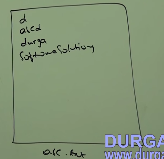 a
abcd
durga
Software Solutions
abc.txt
DURGA
www.durga